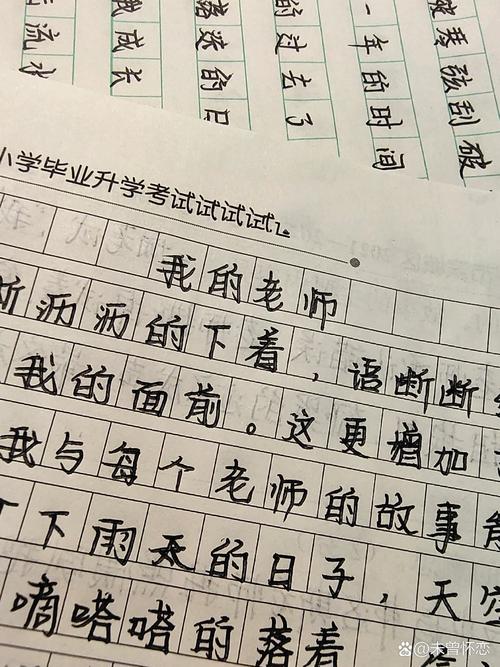 被琴弦刮破
一年的时间
的过去了
的日
我成长
流水
小学毕业升学考试试试试
我的老师
沥沥的下着，语断断
我的面前。这更增加
我与每个老师的故事
下雨天的日子，天空
嘀嗒嗒的落着
@未曾怀恋